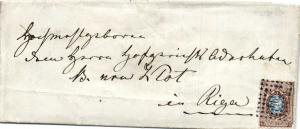 Hochwohlgeboren
dem Herrn Hofgerichts Advokaten
B. von Klot
in Riga